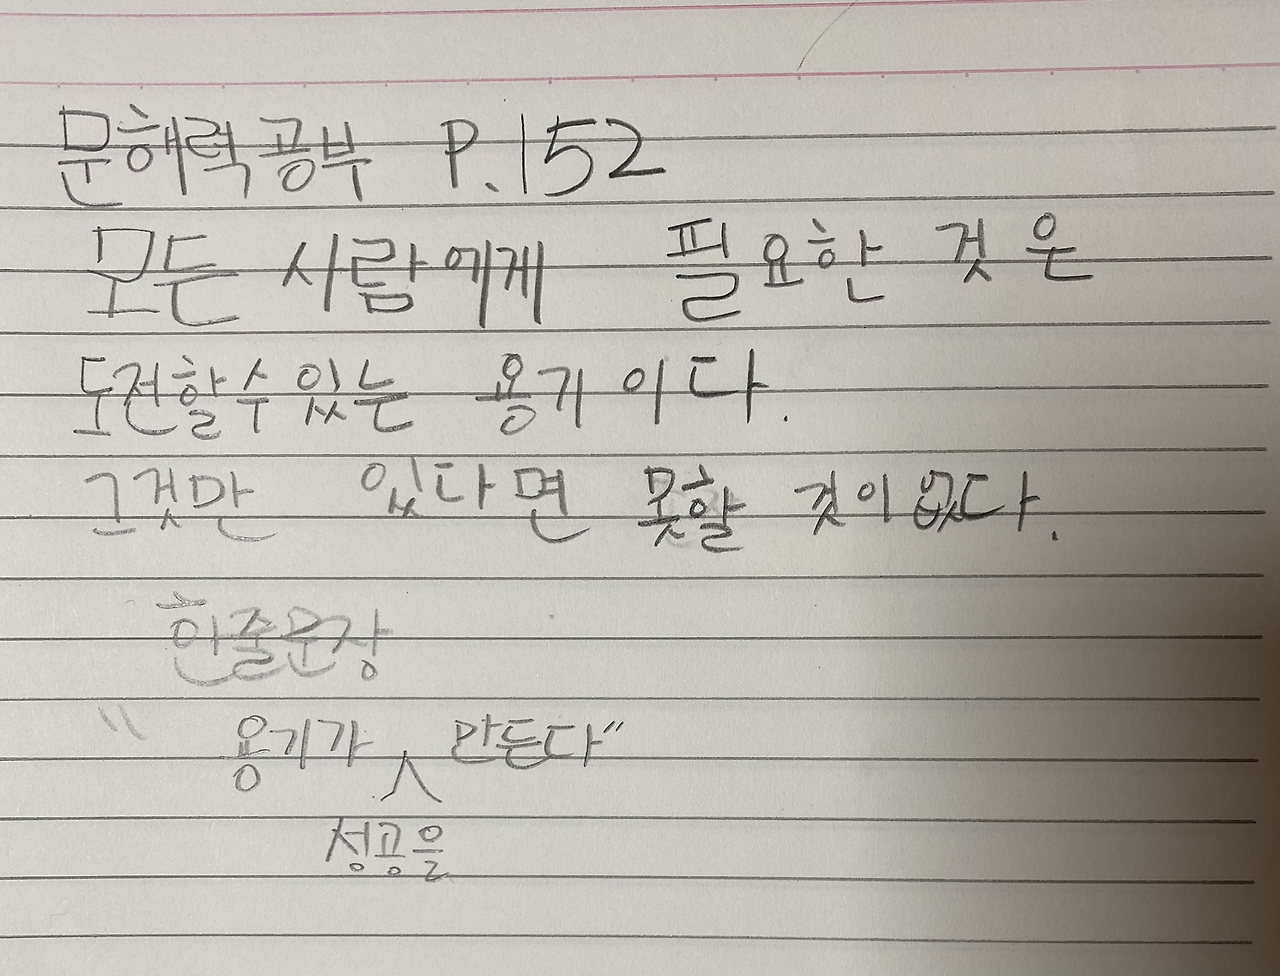 문해력공부 P.152
모든 사람에게 필요한 것은
도전할수있는 용기이다.
그것만 있다면 못할 것이없다.
한줄문장
"용기가 만든다"
성공을